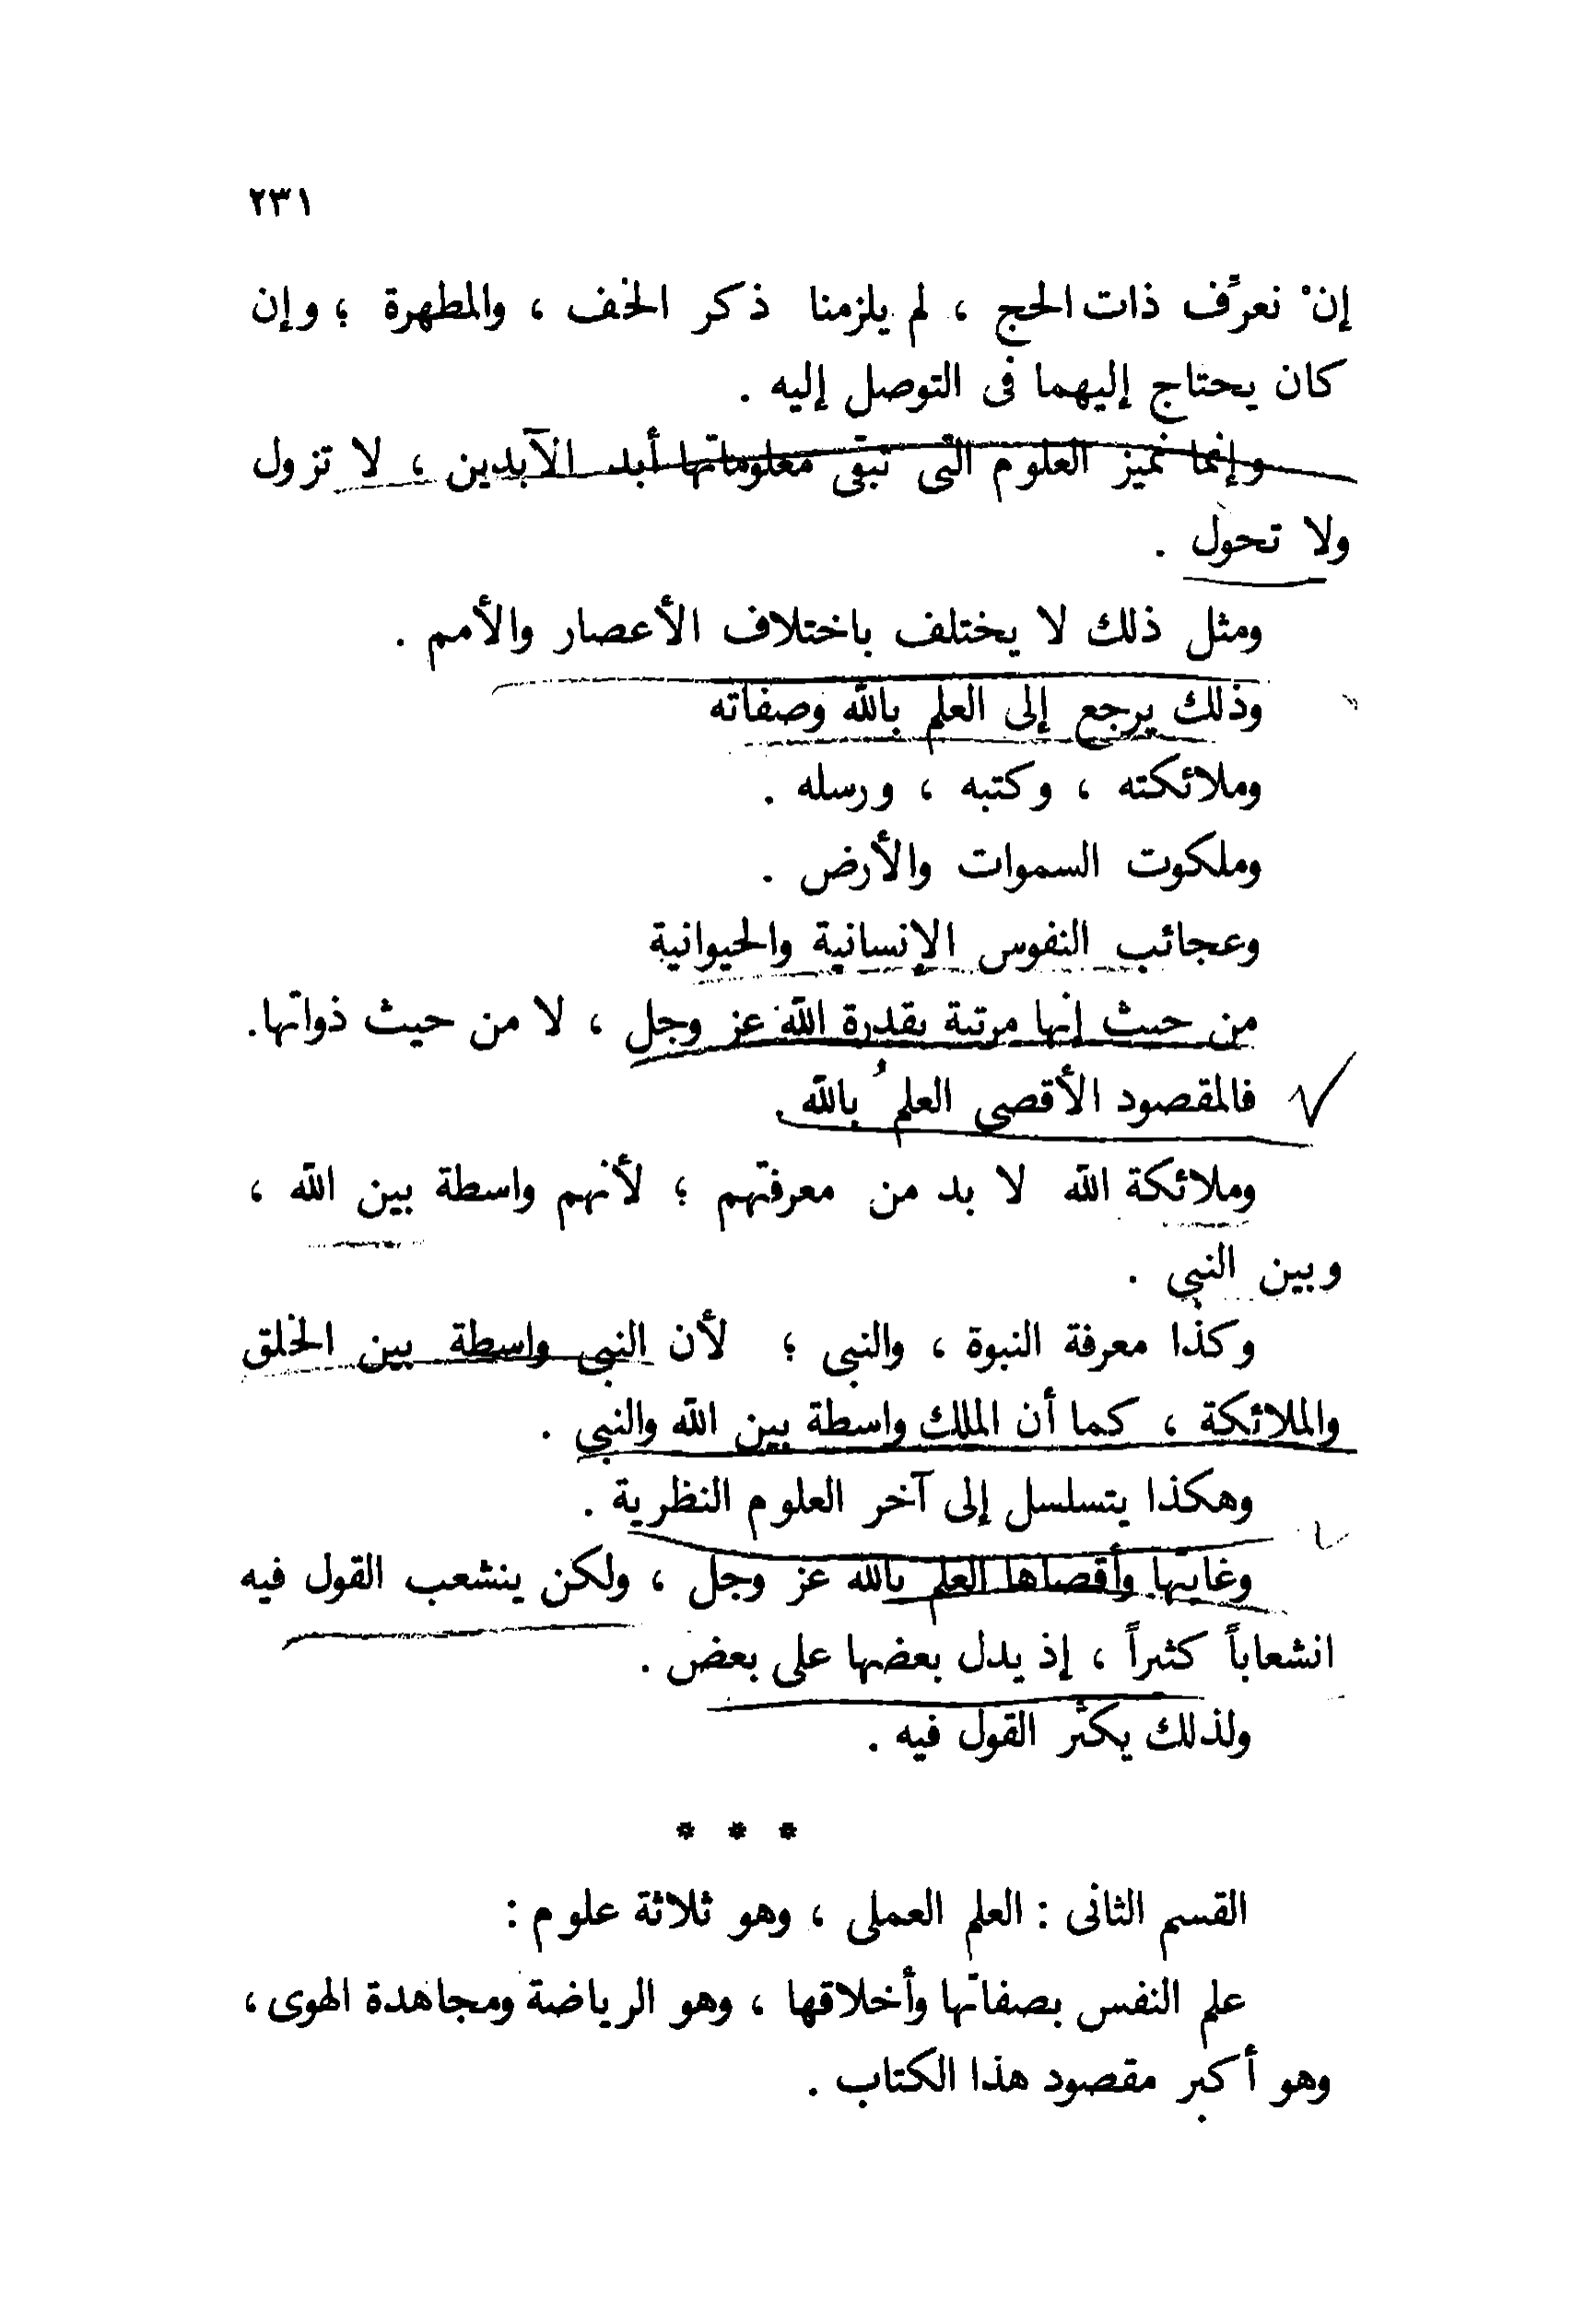 ٢٣١
إنْ نعرِّف ذات الحج ، لم يلزمنا ذكر الخف ، والمطهرة ؛ وإن
كان يحتاج إليهما فى التوصل إليه .
وإنما نميز العلوم التى تبقى معلوماتها أبد الآبدين ، لا تزول
ولا تحول .
ومثل ذلك لا يختلف باختلاف الأعصار والأمم .
وذلك يرجع إلى العلم بالله وصفاته
وملائكته ، وكتبه ، ورسله .
وملكوت السموات والأرض .
وعجائب النفوس الإنسانية والحيوانية
من حيث إنها مرتبة بقدرة الله عز وجل ، لا من حيث ذواتها.
فالمقصود الأقصى العلمُ بالله .
وملائكة الله لا بد من معرفتهم ؛ لأنهم واسطة بين الله ،
وبين النبى .
وكذا معرفة النبوة ، والنبى ؛ لأن النبى واسطة بين الخلق
والملائكة ، كما أن الملك واسطة بين الله والنبى .
وهكذا يتسلسل إلى آخر العلوم النظرية .
وغايتها وأقصاها العلم بالله عز وجل ، ولكن ينشعب القول فيه
انشعاباً كثيراً ، إذ يدل بعضها على بعض .
ولذلك يكثر القول فيه .
* * *
القسم الثانى : العلم العملى ، وهو ثلاثة علوم :
علم النفس بصفاتها وأخلاقها ، وهو الرياضة ومجاهدة الهوى ،
وهو أكبر مقصود هذا الكتاب .